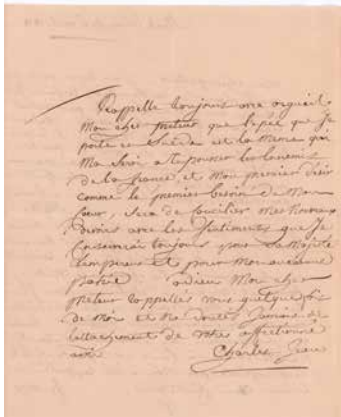 Rappelle toujours avec orgueil
Mon cher que l'epée que Je
porte en Suède est la meme qui
Ma Servi a repousser les Ennemis
de la france et Mon premier désir
comme le premier besoin de Mon
Coeur, Sera de Concilier Mes Nouveaux
devoirs avec les Sentiments que Je
Conserverai toujours pour Sa Majesté
l'empereur et pour Mon ancienne
patrie adieu Mon cher
rappelles vous quelque fois
de Moi et Ne doutes Jamais de
l'attachement de votre affectionné
ami
Charles Jean